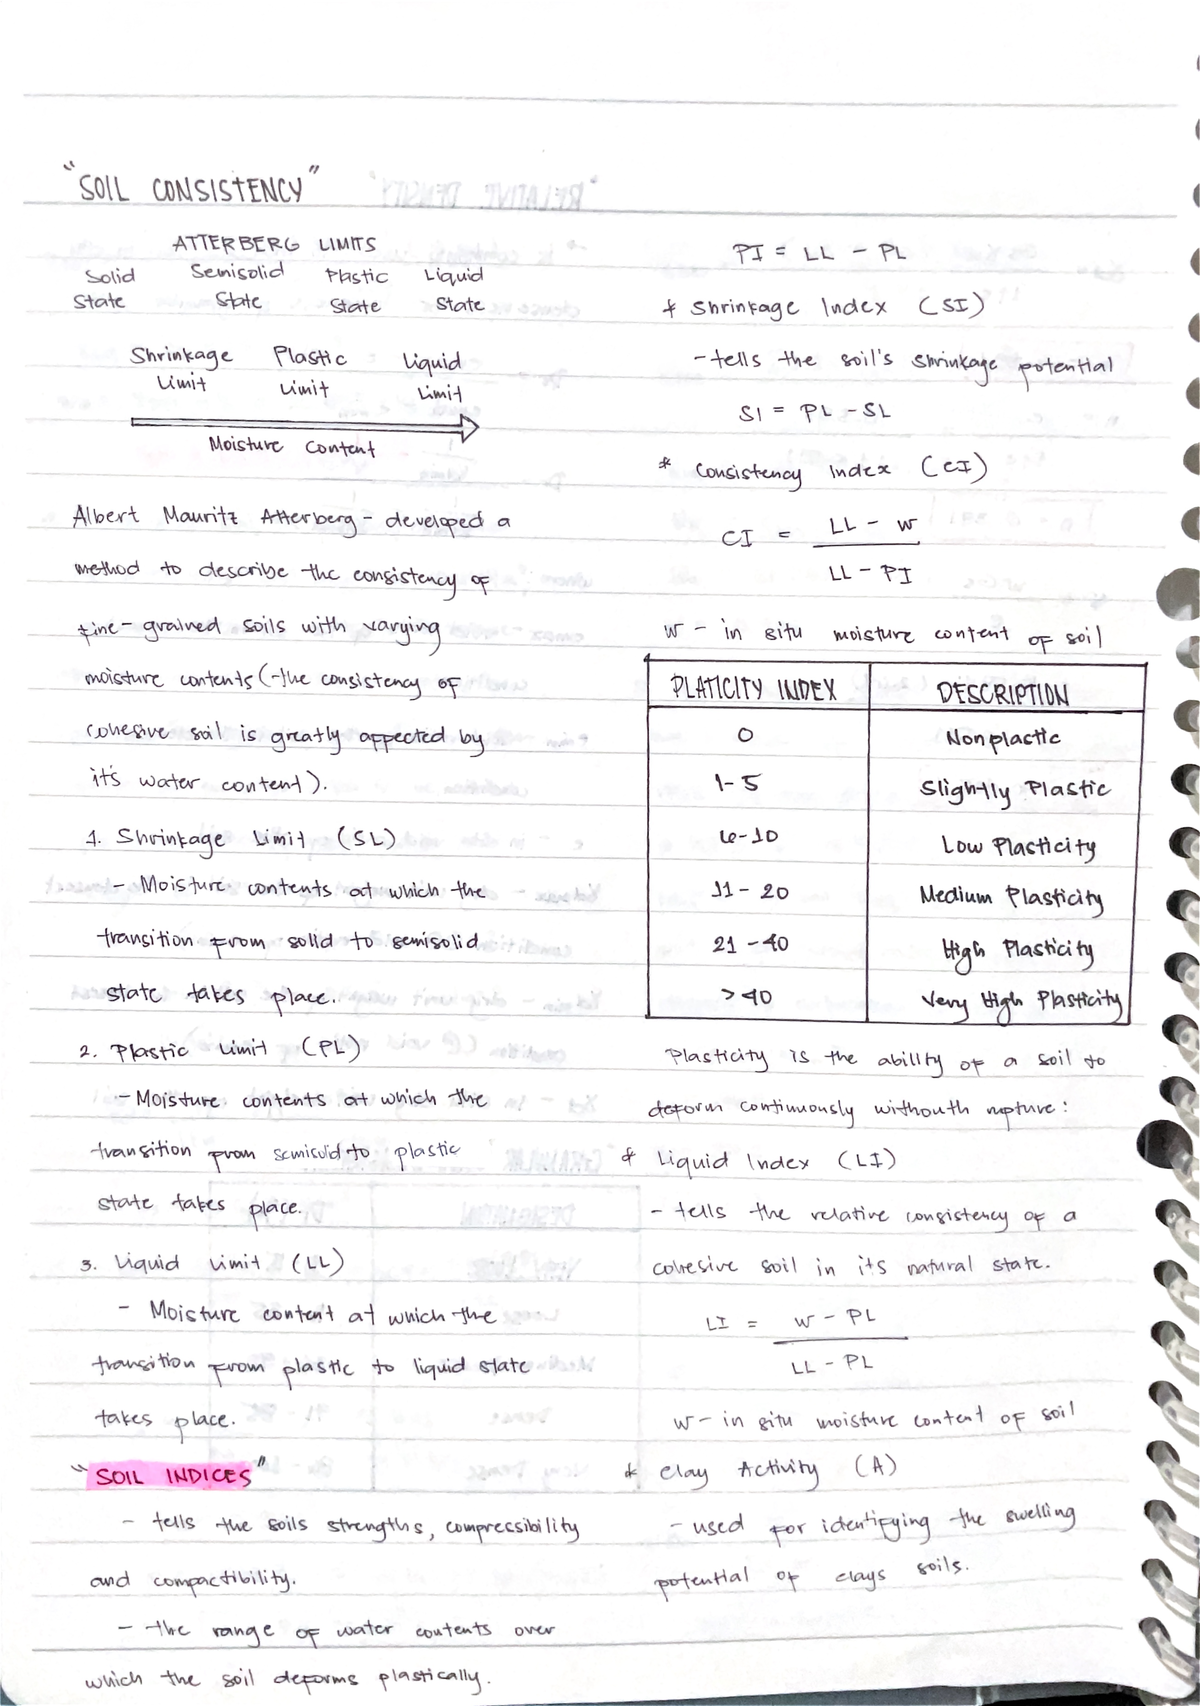 "SOIL CONSISTENCY"
ATTERBERG LIMITS
Solid State
Semisolid State
Plastic State
Liquid State
Shrinkage Limit
Plastic Limit
Liquid Limit
Moisture Content
Albert Mauritz Atterberg - developed a
method to describe the consistency of
fine-grained soils with varying
moisture contents (the consistency of
cohesive soil is greatly affected by
it's water content).
1. Shrinkage Limit (SL)
- Moisture contents at which the
transition from solid to semisolid
state takes place.
2. Plastic Limit (PL)
- Moisture contents at which the
transition from semisolid to plastic
state takes place.
3. Liquid Limit (LL)
- Moisture content at which the
transition from plastic to liquid state
takes place.
"SOIL INDICES"
- tells the soils strengths, compressibility
and compactibility.
- the range of water contents over
which the soil deforms plastically.
PI = LL - PL
* Shrinkage Index (SI)
- tells the soil's shrinkage potential
SI = PL - SL
* Consistency Index (CI)
CI = LL - w
LL - PI
w - in situ moisture content of soil
PLATICITY INDEX DESCRIPTION
0 Nonplastic
1-5 Slightly Plastic
6-10 Low Plasticity
11-20 Medium Plasticity
21-40 High Plasticity
>40 Very High Plasticity
Plasticity is the ability of a soil to
deform continuously withouth rupture:
* Liquid Index (LI)
- tells the relative consistency of a
cohesive soil in its natural state.
LI = w - PL
LL - PL
w - in situ moisture content of soil
* Clay Activity (A)
- used for identifying the swelling
potential of clays soils.